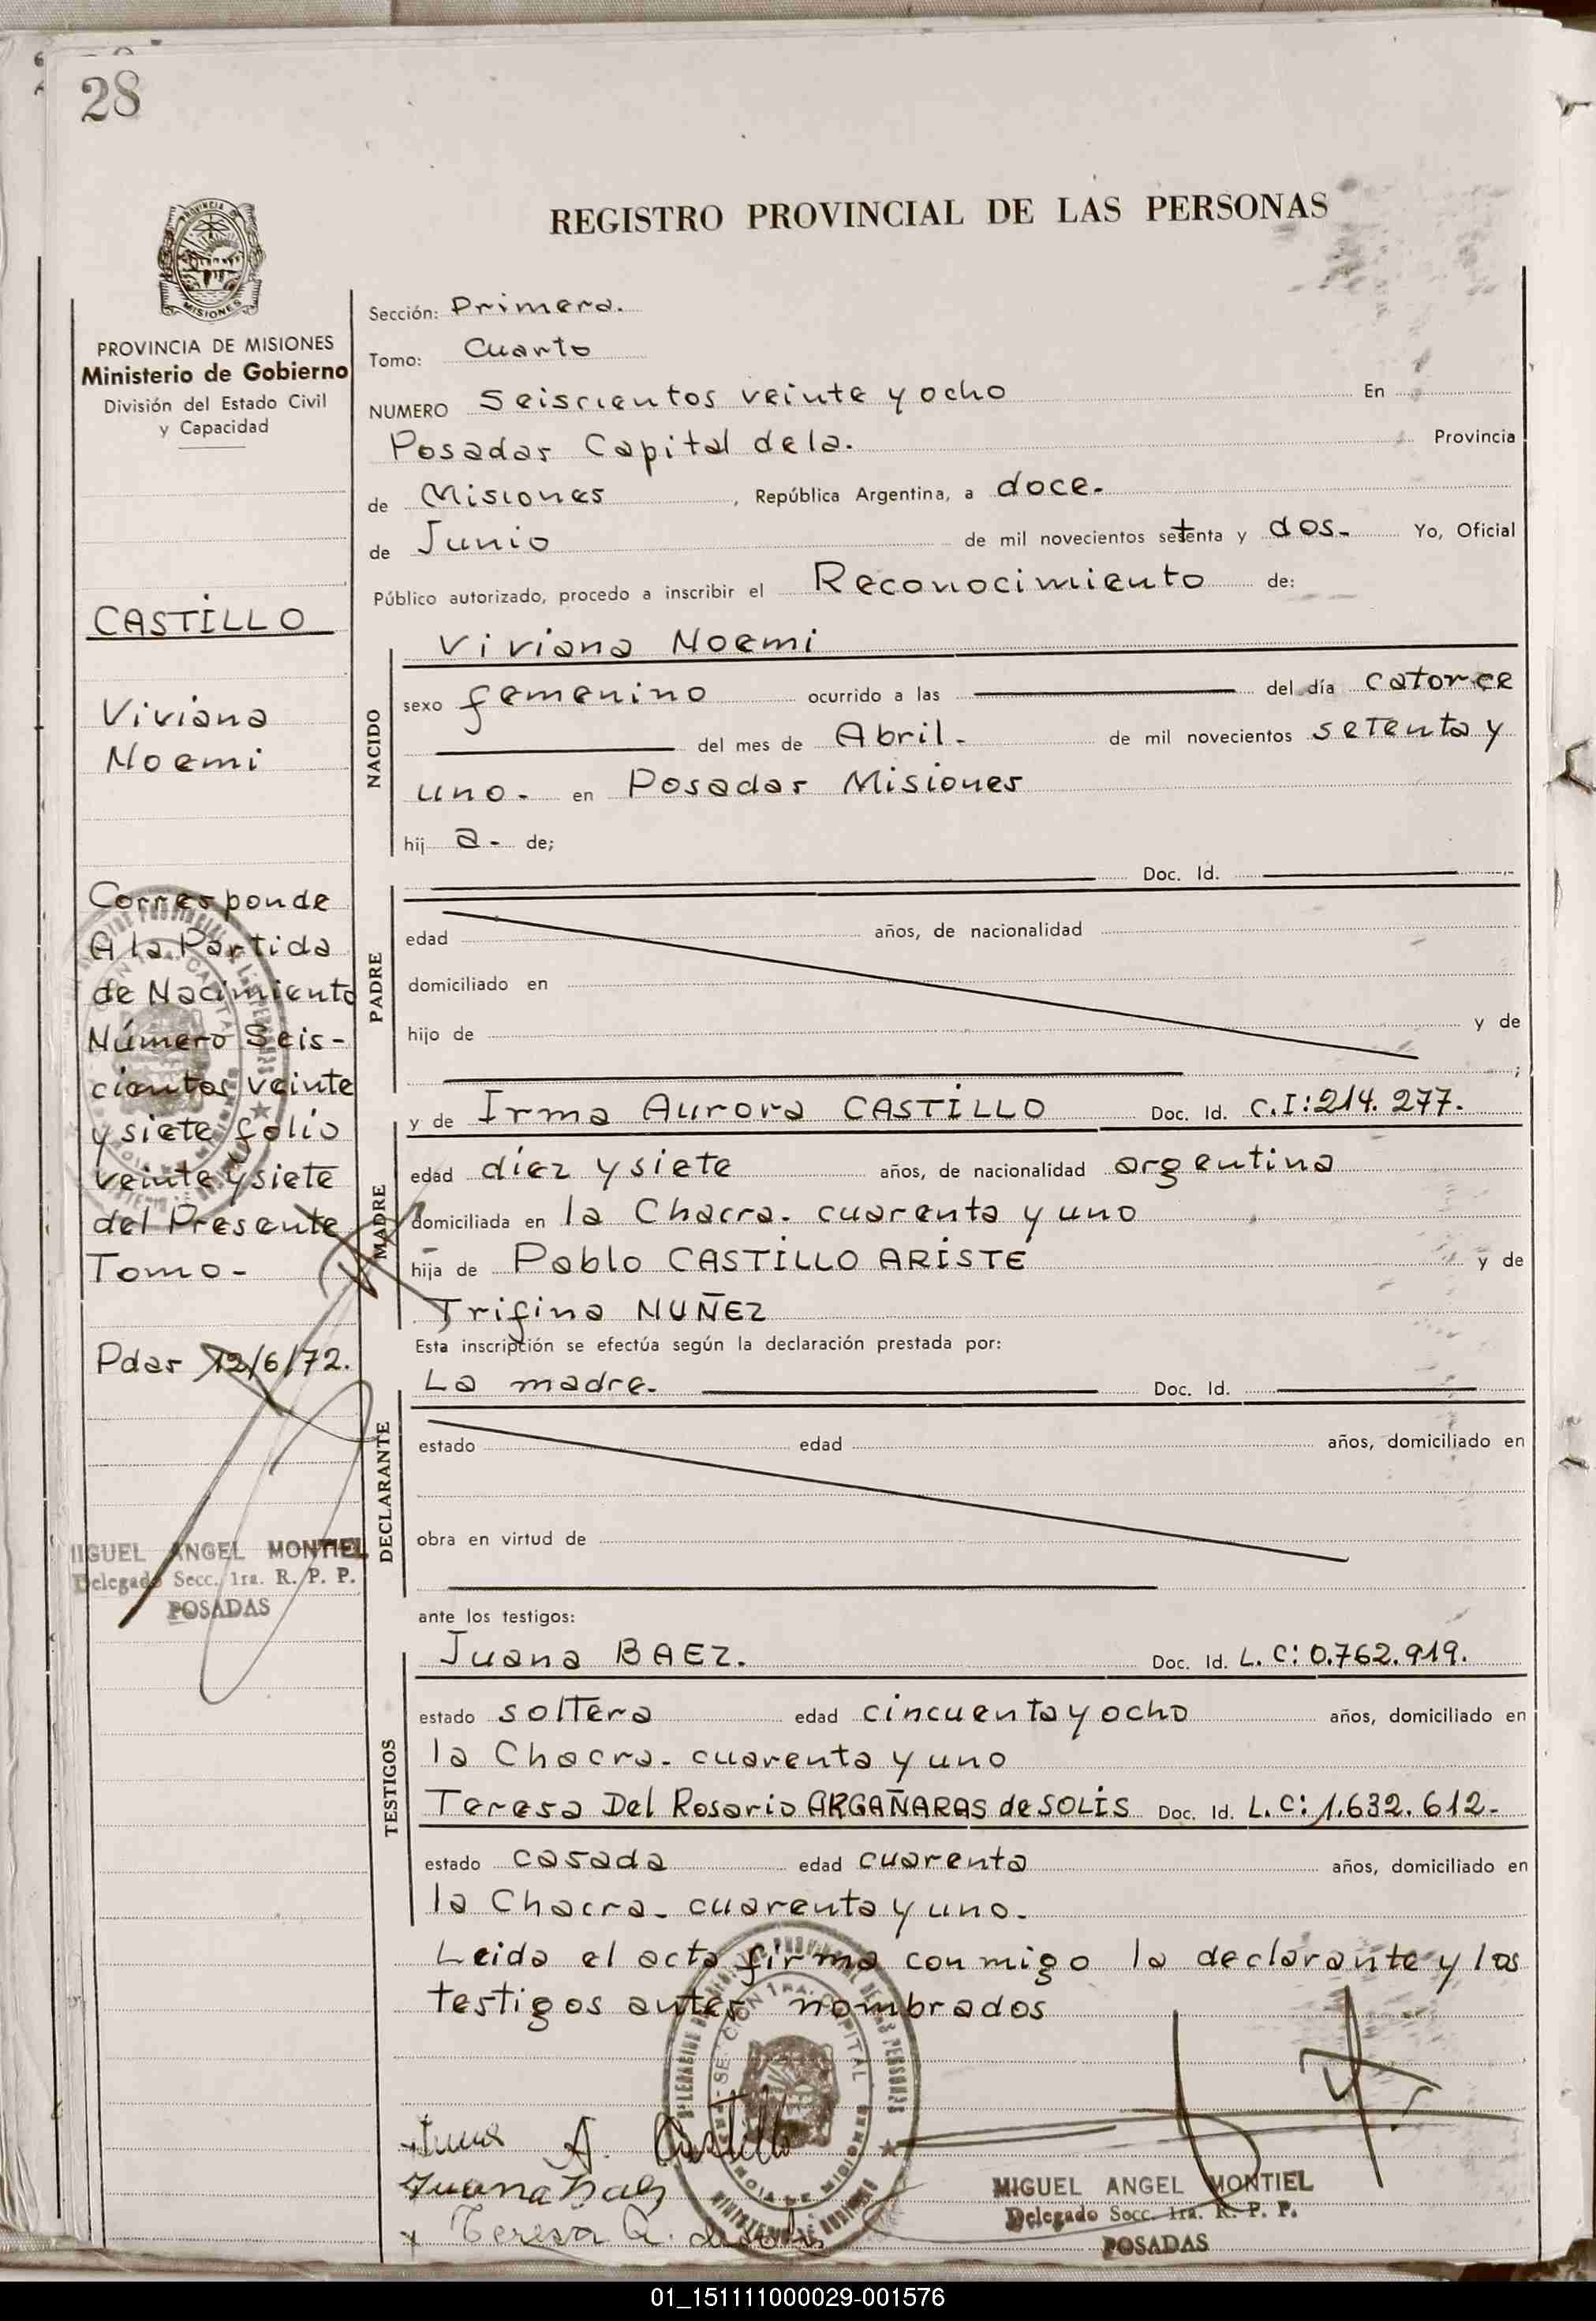 28
REGISTRO PROVINCIAL DE LAS PERSONAS
MISIONES
PROVINCIA DE MISIONES
Ministerio de Gobierno
División del Estado Civil
y Capacidad
CASTILLO
Viviana
Noemi
Corresponde
A la Partida
de Nacimiento
Número Seis-
cientos veinte
y siete folio
veinte y siete
del Presente
Tomo-
Pdas 12/6/72.
MIGUEL ANGEL MONTIEL
Delegado Secc. 1ra. R. P. P.
POSADAS
Sección: Primera.
Tomo: Cuarto
NUMERO Seiscientos veinte y ocho En
Posadas Capital de la. Provincia
de Misiones, República Argentina, a doce.
de Junio de mil novecientos setenta y dos- Yo, Oficial
Público autorizado, procedo a inscribir el Reconocimiento de:
NACIDO
Viviana Noemi
sexo femenino ocurrido a las del día catorce
del mes de Abril- de mil novecientos setenta y
uno- en Posadas Misiones
hij a- de;
PADRE
Doc. Id.
edad años, de nacionalidad
domiciliado en
hijo de y de
;
MADRE
y de Irma Aurora CASTILLO Doc. Id. C.I:214.277.
edad diez y siete años, de nacionalidad argentina
domiciliada en la Chacra. cuarenta y uno
hija de Pablo CASTILLO ARISTE y de
Trifina NUÑEZ
Esta inscripción se efectúa según la declaración prestada por:
DECLARANTE
La madre. Doc. Id.
estado edad años, domiciliado en
obra en virtud de
ante los testigos:
TESTIGOS
Juana BAEZ. Doc. Id. L.C: 0.762.919.
estado soltera edad cincuenta y ocho años, domiciliado en
la Chacra- cuarenta y uno
Teresa Del Rosario ARGAÑARAS de SOLIS Doc. Id. L.C: 1.632.612-
estado casada edad cuarenta años, domiciliado en
la Chacra- cuarenta y uno-
Leida el acta firma conmigo la declarante y los
testigos antes nombrados
Irma A. Castillo
Juana Baez
x Teresa A. de Solis
MIGUEL ANGEL MONTIEL
Delegado Secc. 1ra. R. P. P.
POSADAS
01_151111000029-001576